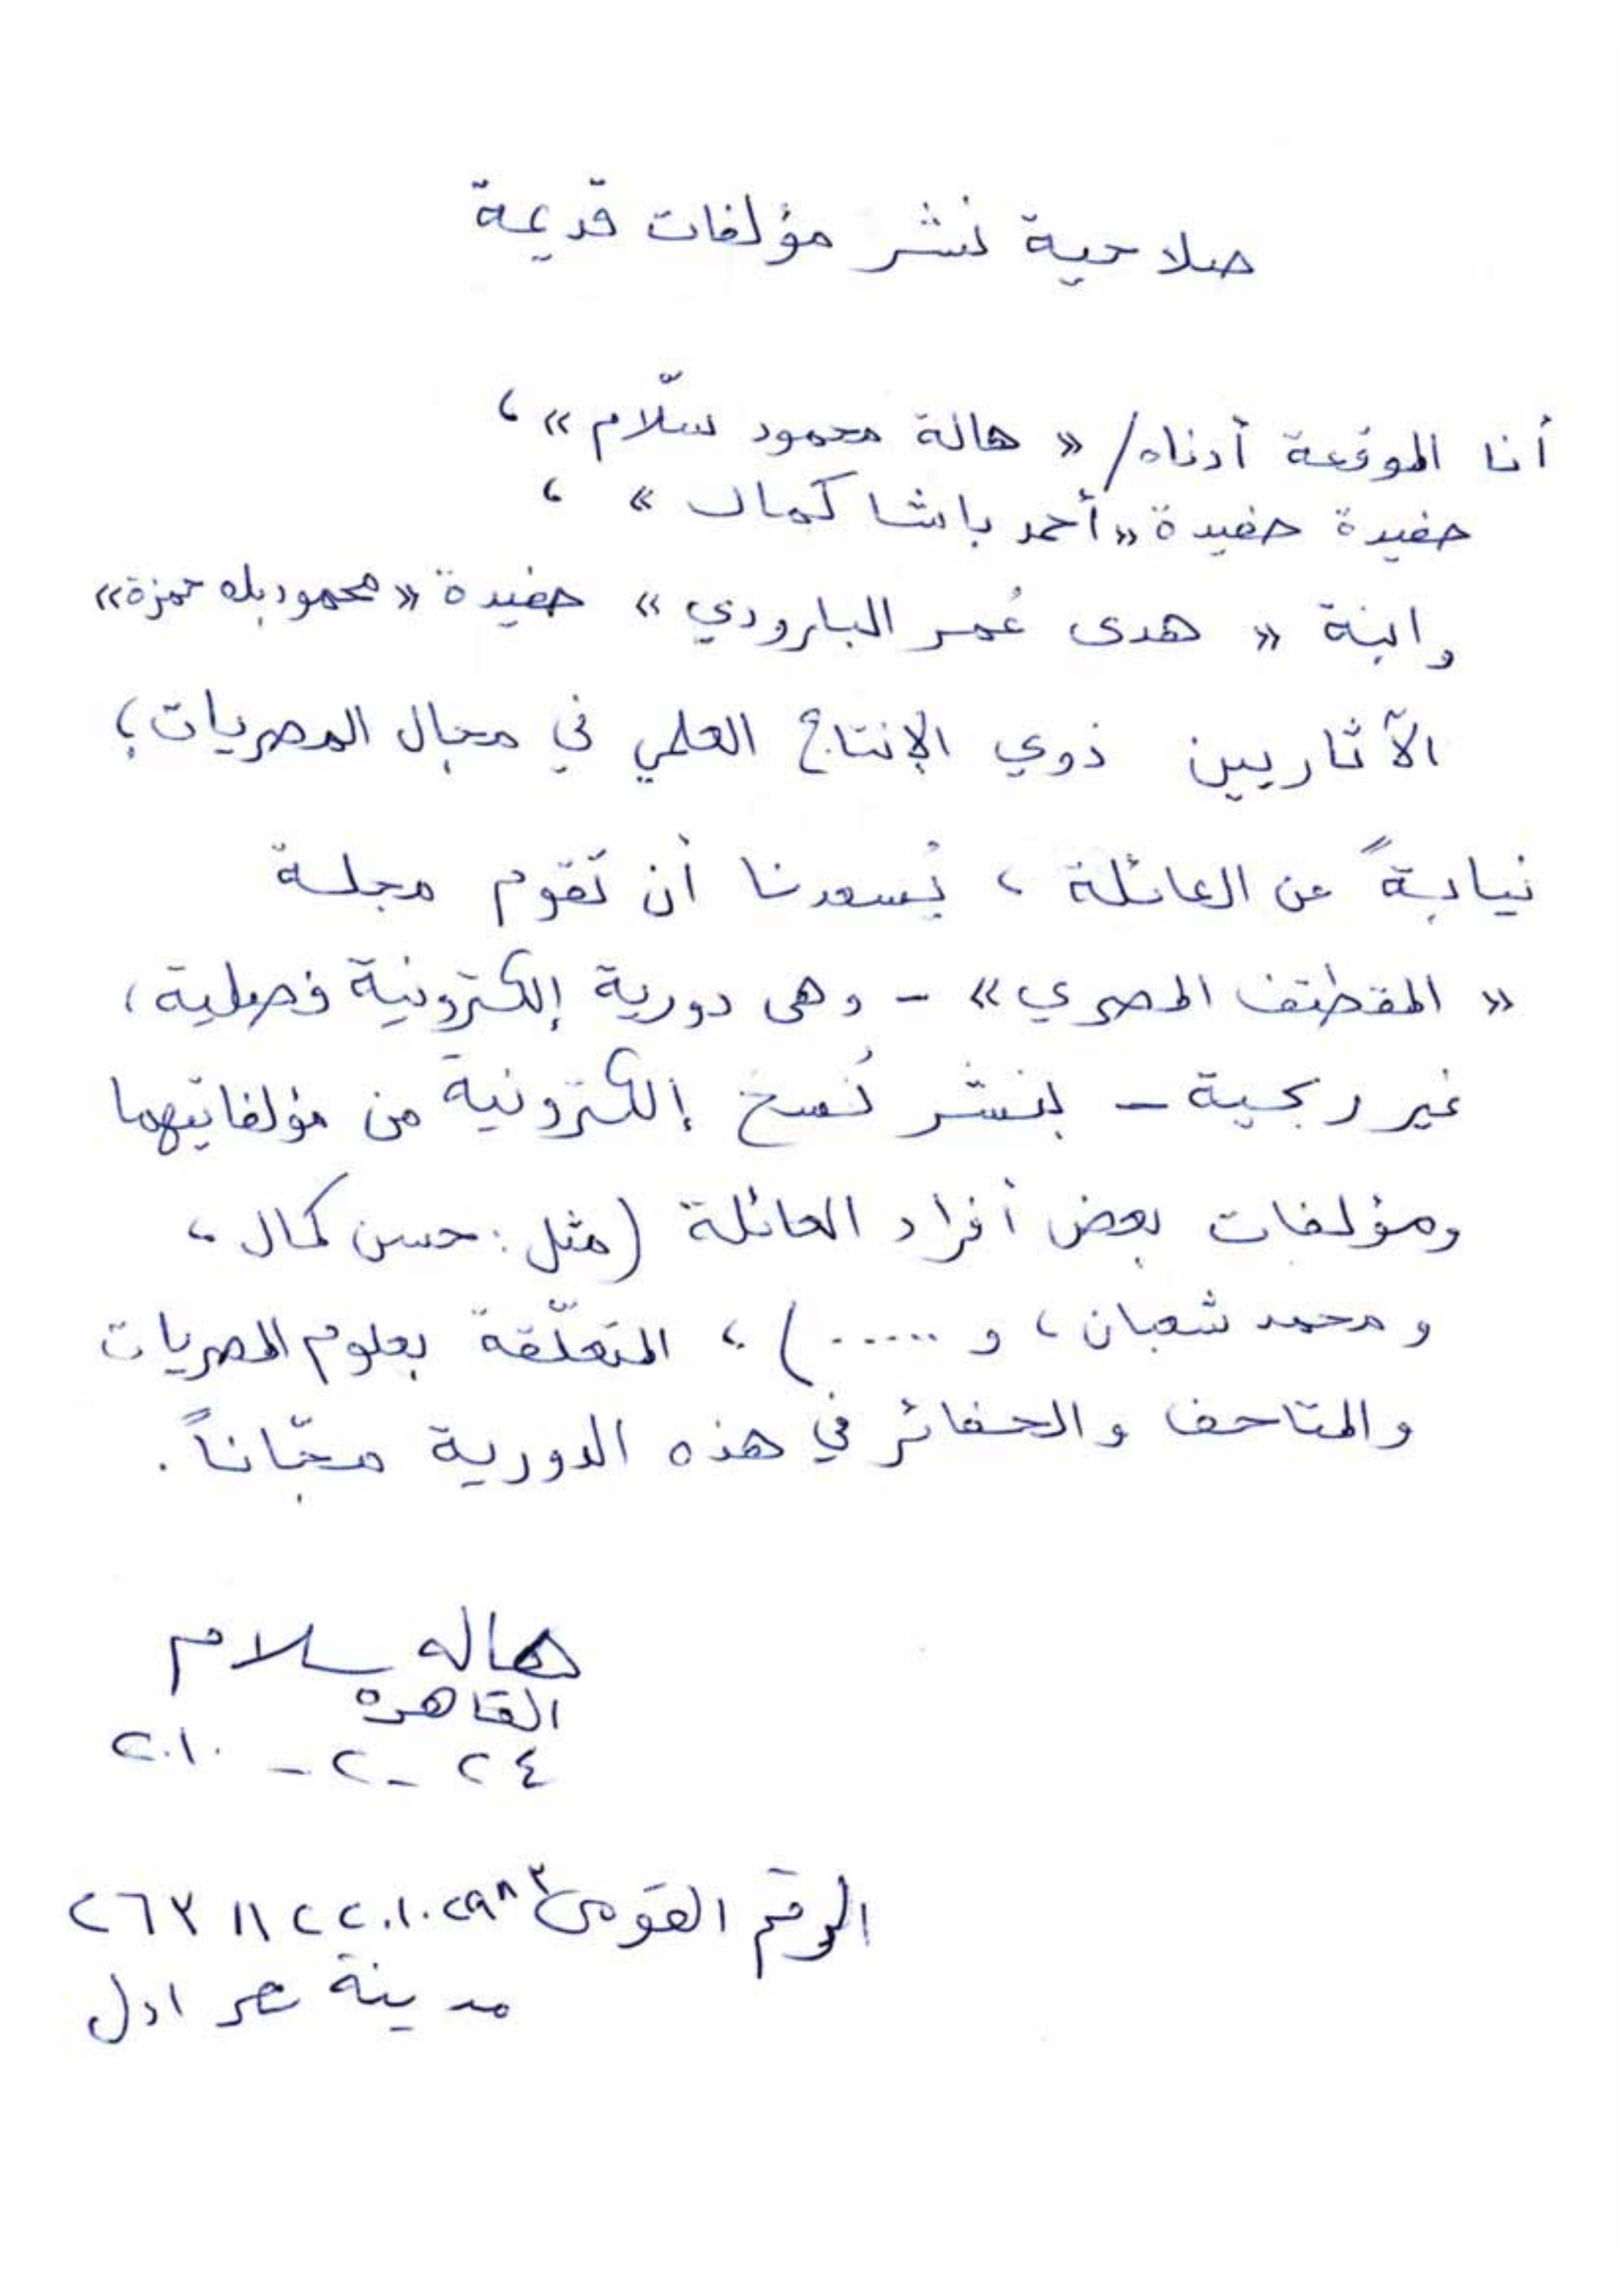 صلاحية نشر مؤلفات قديمة
أنا الموقعة أدناه/ « هالة محمود سلّام » ،
حفيدة حفيدة « أحمد باشا كمال » ،
وابنة « هدى عُمر البارودي » حفيدة « محمود بك حمزة »
الآثاريين ذوي الإنتاج العلمي في مجال المصريات ؛
نيابةً عن العائلة ، يُسعدنا أن تقوم مجلة
« المقتطف المصري » - وهى دورية إلكترونية فصلية ،
غير ربحية - بنشر نُسخ إلكترونية من مؤلفاتيهما
ومؤلفات بعض أفراد العائلة (مثل : حسن كمال ،
ومحمد شعبان ، و .....) ، المتعلّقة بعلوم المصريات
والمتاحف والحفائر في هذه الدورية مجّاناً .
هاله سلام
القاهره
٢٤ - ٢ - ٢٠١٠
الرقم القومى
مدينة نصر اول